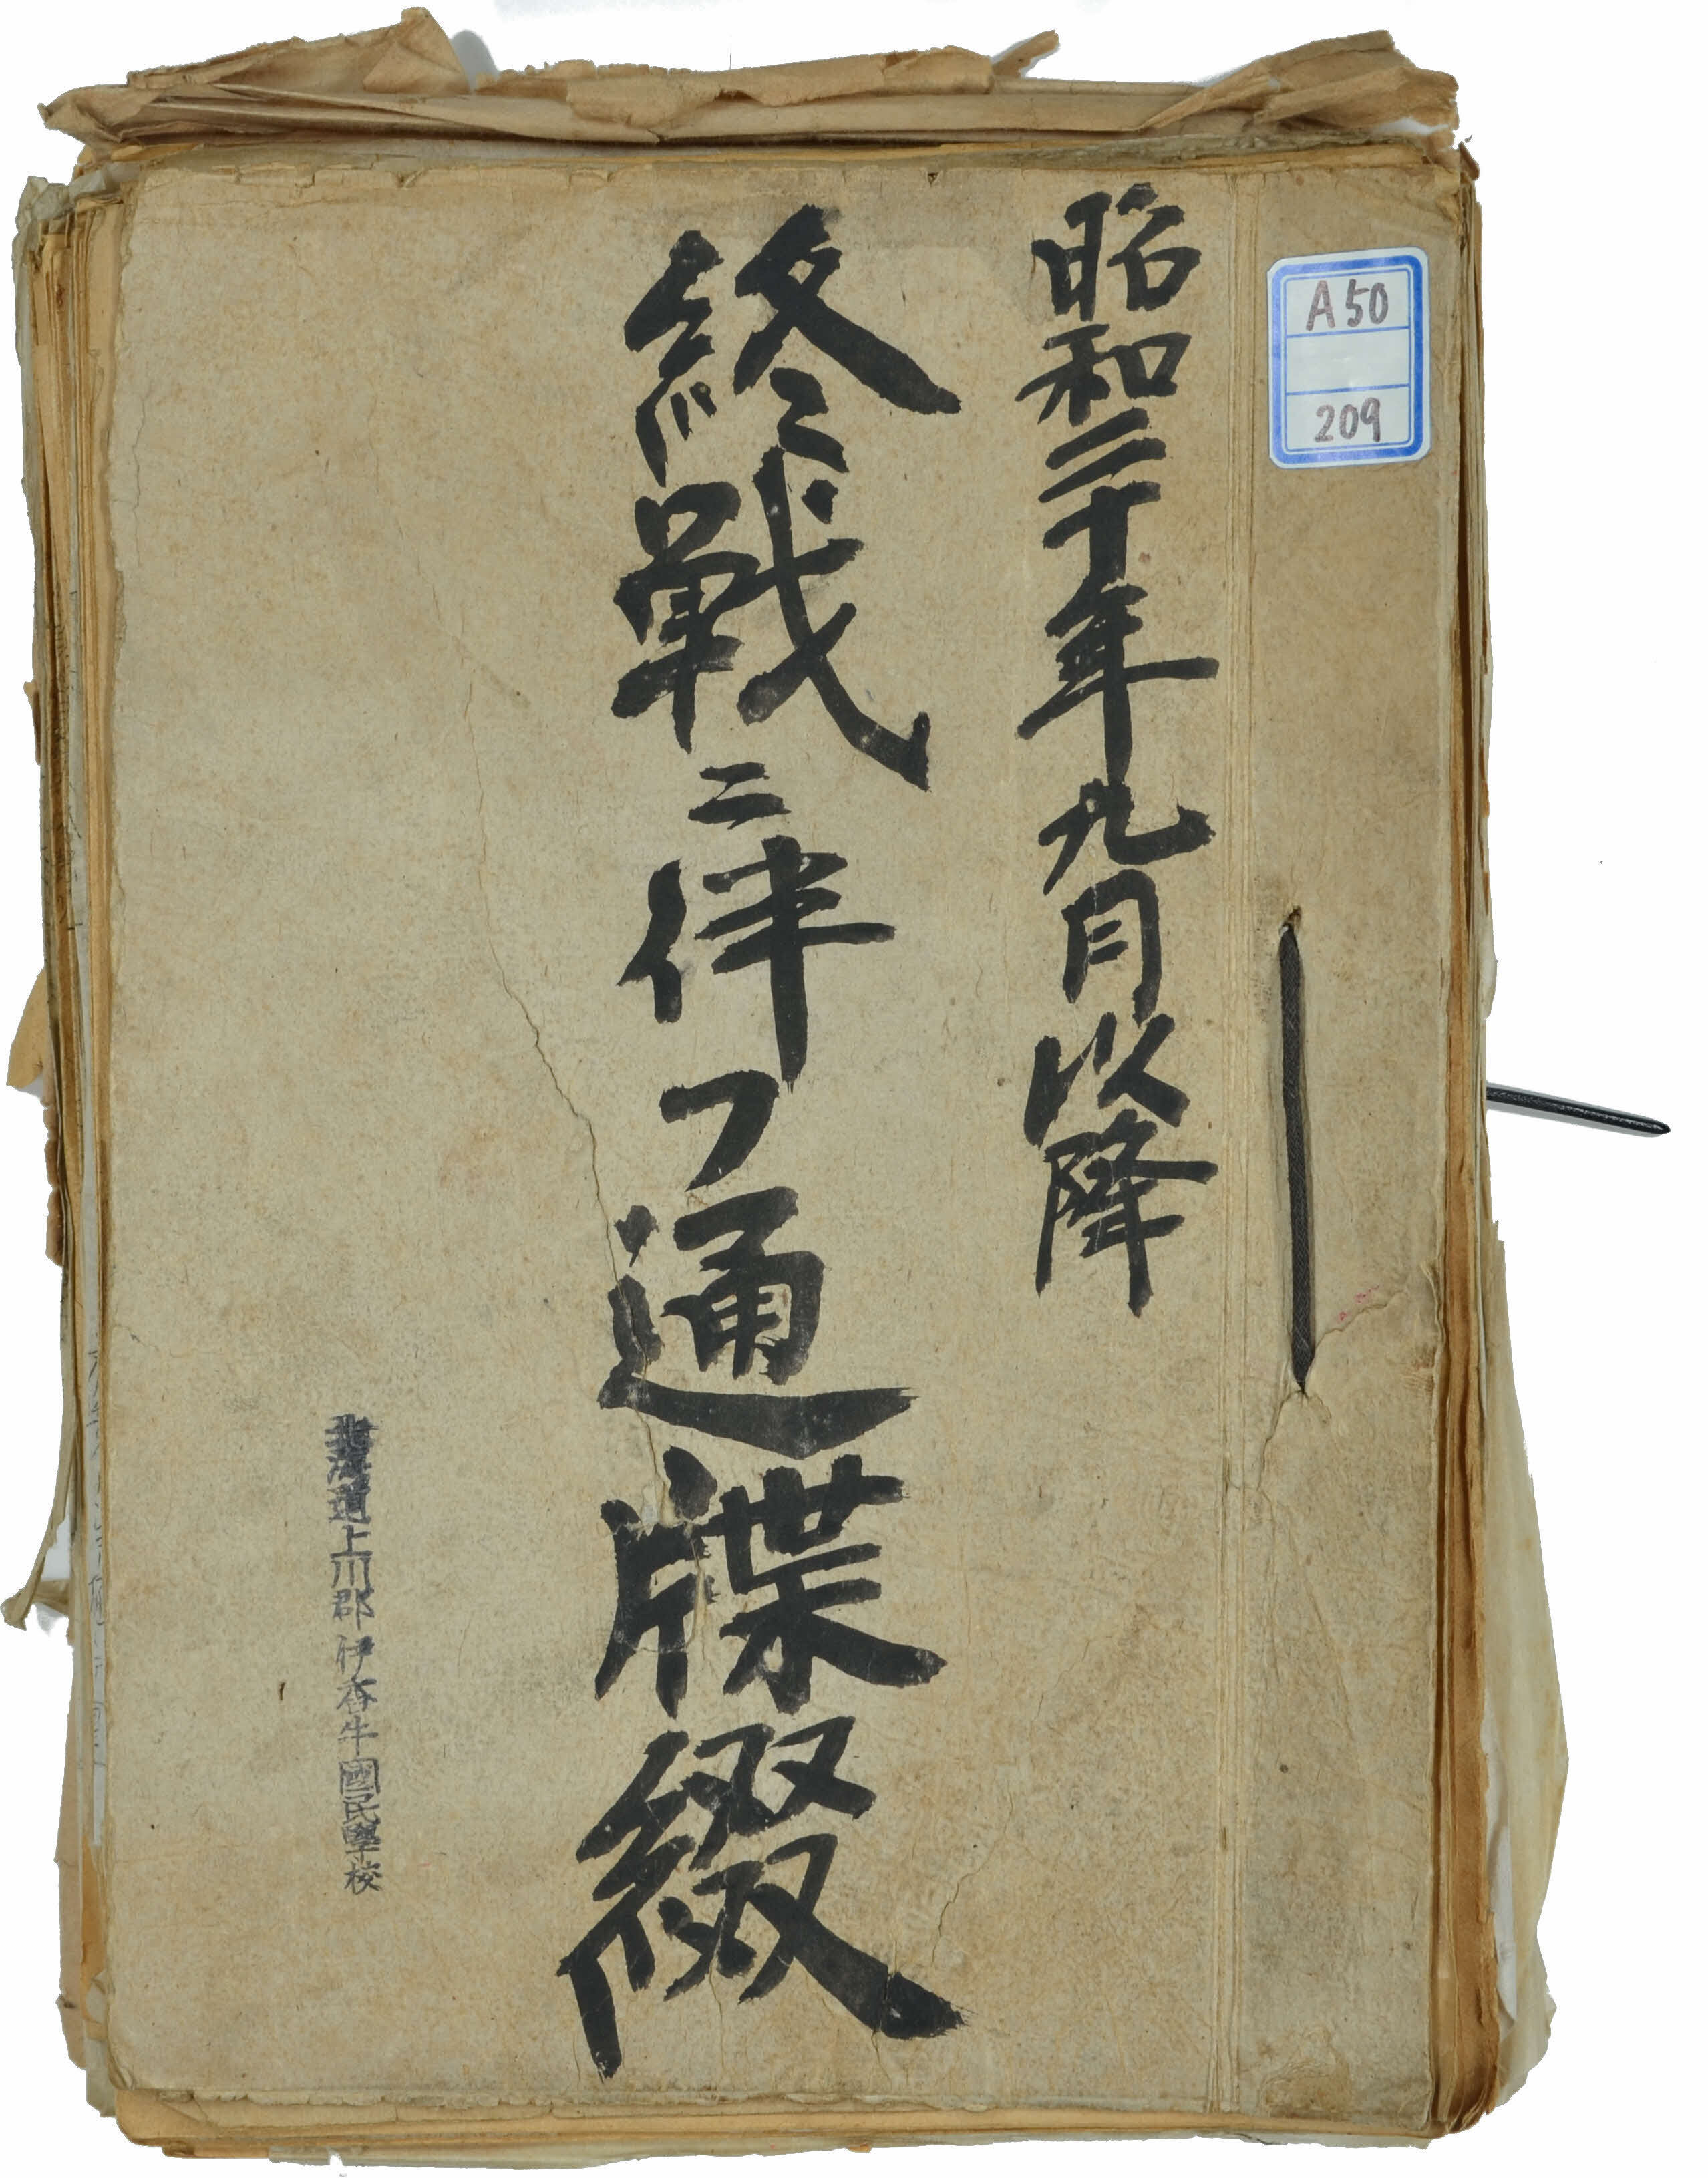 A50
209
昭和二十年九月以降
終戰ニ伴フ通牒綴
北海道上川郡伊香牛國民學校